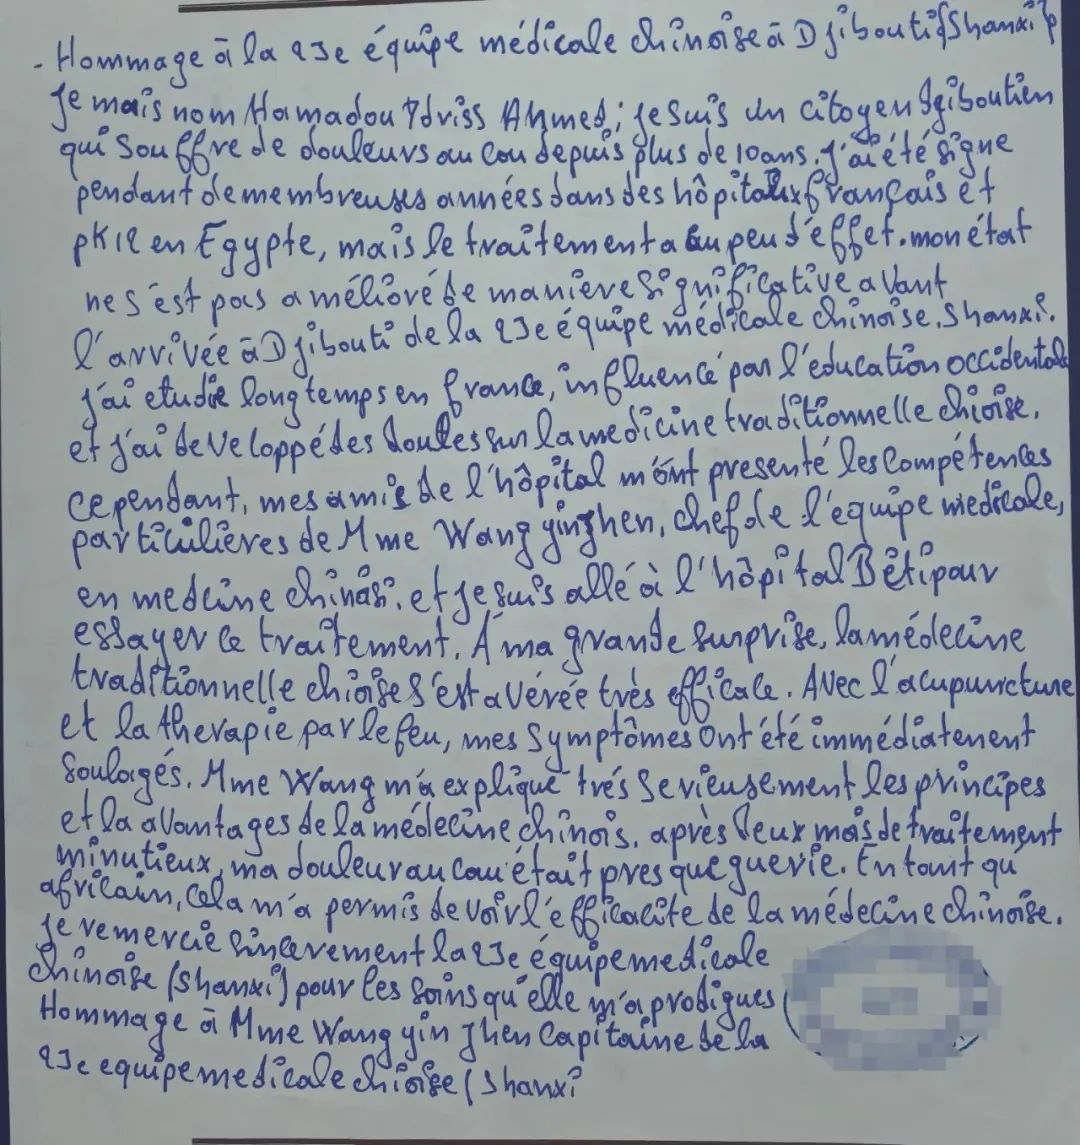 - Hommage à la 23e équipe médicale chinoise à Djibouti (Shanxi)
Je mais nom Hamadou Idriss Ahmed; je suis un citoyen djiboutien
qui souffre de douleurs au cou depuis plus de 10 ans. j'ai été signe
pendant de membreuses années dans des hôpitalix français et
pk12 en Egypte, mais le traitement a eu peu d'effet. mon état
ne s'est pas amélioré de manière significative avant
l'arrivée à Djibouti de la 23e équipe médicale chinoise. Shanxi.
j'ai etudie longtemps en france, influencé par l'éducation occidentale
et j'ai développé des doutes sur la medicine traditionnelle chioise.
cependant, mes amis de l'hôpital m'ont presenté les compétences
particulières de Mme Wang yinzhen, chef de l'équipe medicale,
en medcine chinois. et je suis allé à l'hôpital Bêti pour
essayer ce traitement. À ma grande surprise, la médecine
traditionnelle chioise s'est avérée très efficale. Avec l'acupuncture
et la therapie par le feu, mes symptômes ont été immédiatenent
soulagés. Mme Wang m'a explique très serieusement les principes
et la avantages de la médecine chinois. après deux mois de traitement
minutieux, ma douleur au cou était presque guerie. En tant qu'
africain, cela m'a permis de voir l'efficacite de la médecine chinoise.
je remercie sincerement la 23e équipe medicale
chinoise (shanxi) pour les soins qu'elle m'a prodigues
Hommage à Mme Wang yin Zhen Capitaine de la
23e equipe medicale chioise (shanxi